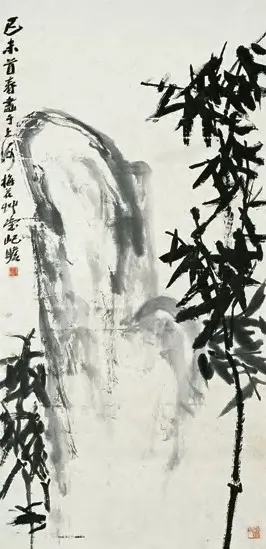 己未首春畫于上海梅花艸堂屺瞻